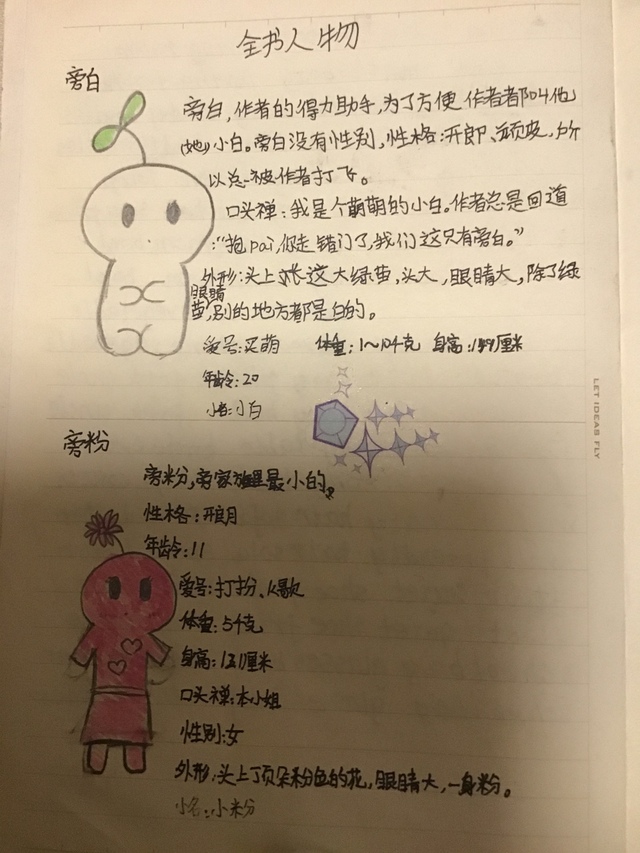 全书人物
旁白
旁白,作者的得力助手,为了方便作者都叫他
(她)小白。旁白没有性别,性格:开郎、顽皮,所
以总被作者打飞。
口头禅:我是个萌萌的小白。作者总是回道
:“抱pai,你走错门了,我们这只有旁白。”
外形:头上长这大绿苗,头大,眼睛大,除了绿
眼睛
苗,别的地方都是白的。
爱号:买萌 体重:1~10千克 身高:149厘米
年龄:20
小名:小白
LET IDEAS FLY
旁粉
旁粉,旁家族里最小的。
性格:开朗
年龄:11
爱号:打扮、K歌
体重:5千克
身高:121厘米
口头禅:本小姐
性别:女
外形:头上丁页朵粉色的花,眼睛大,一身粉。
小名:小粉